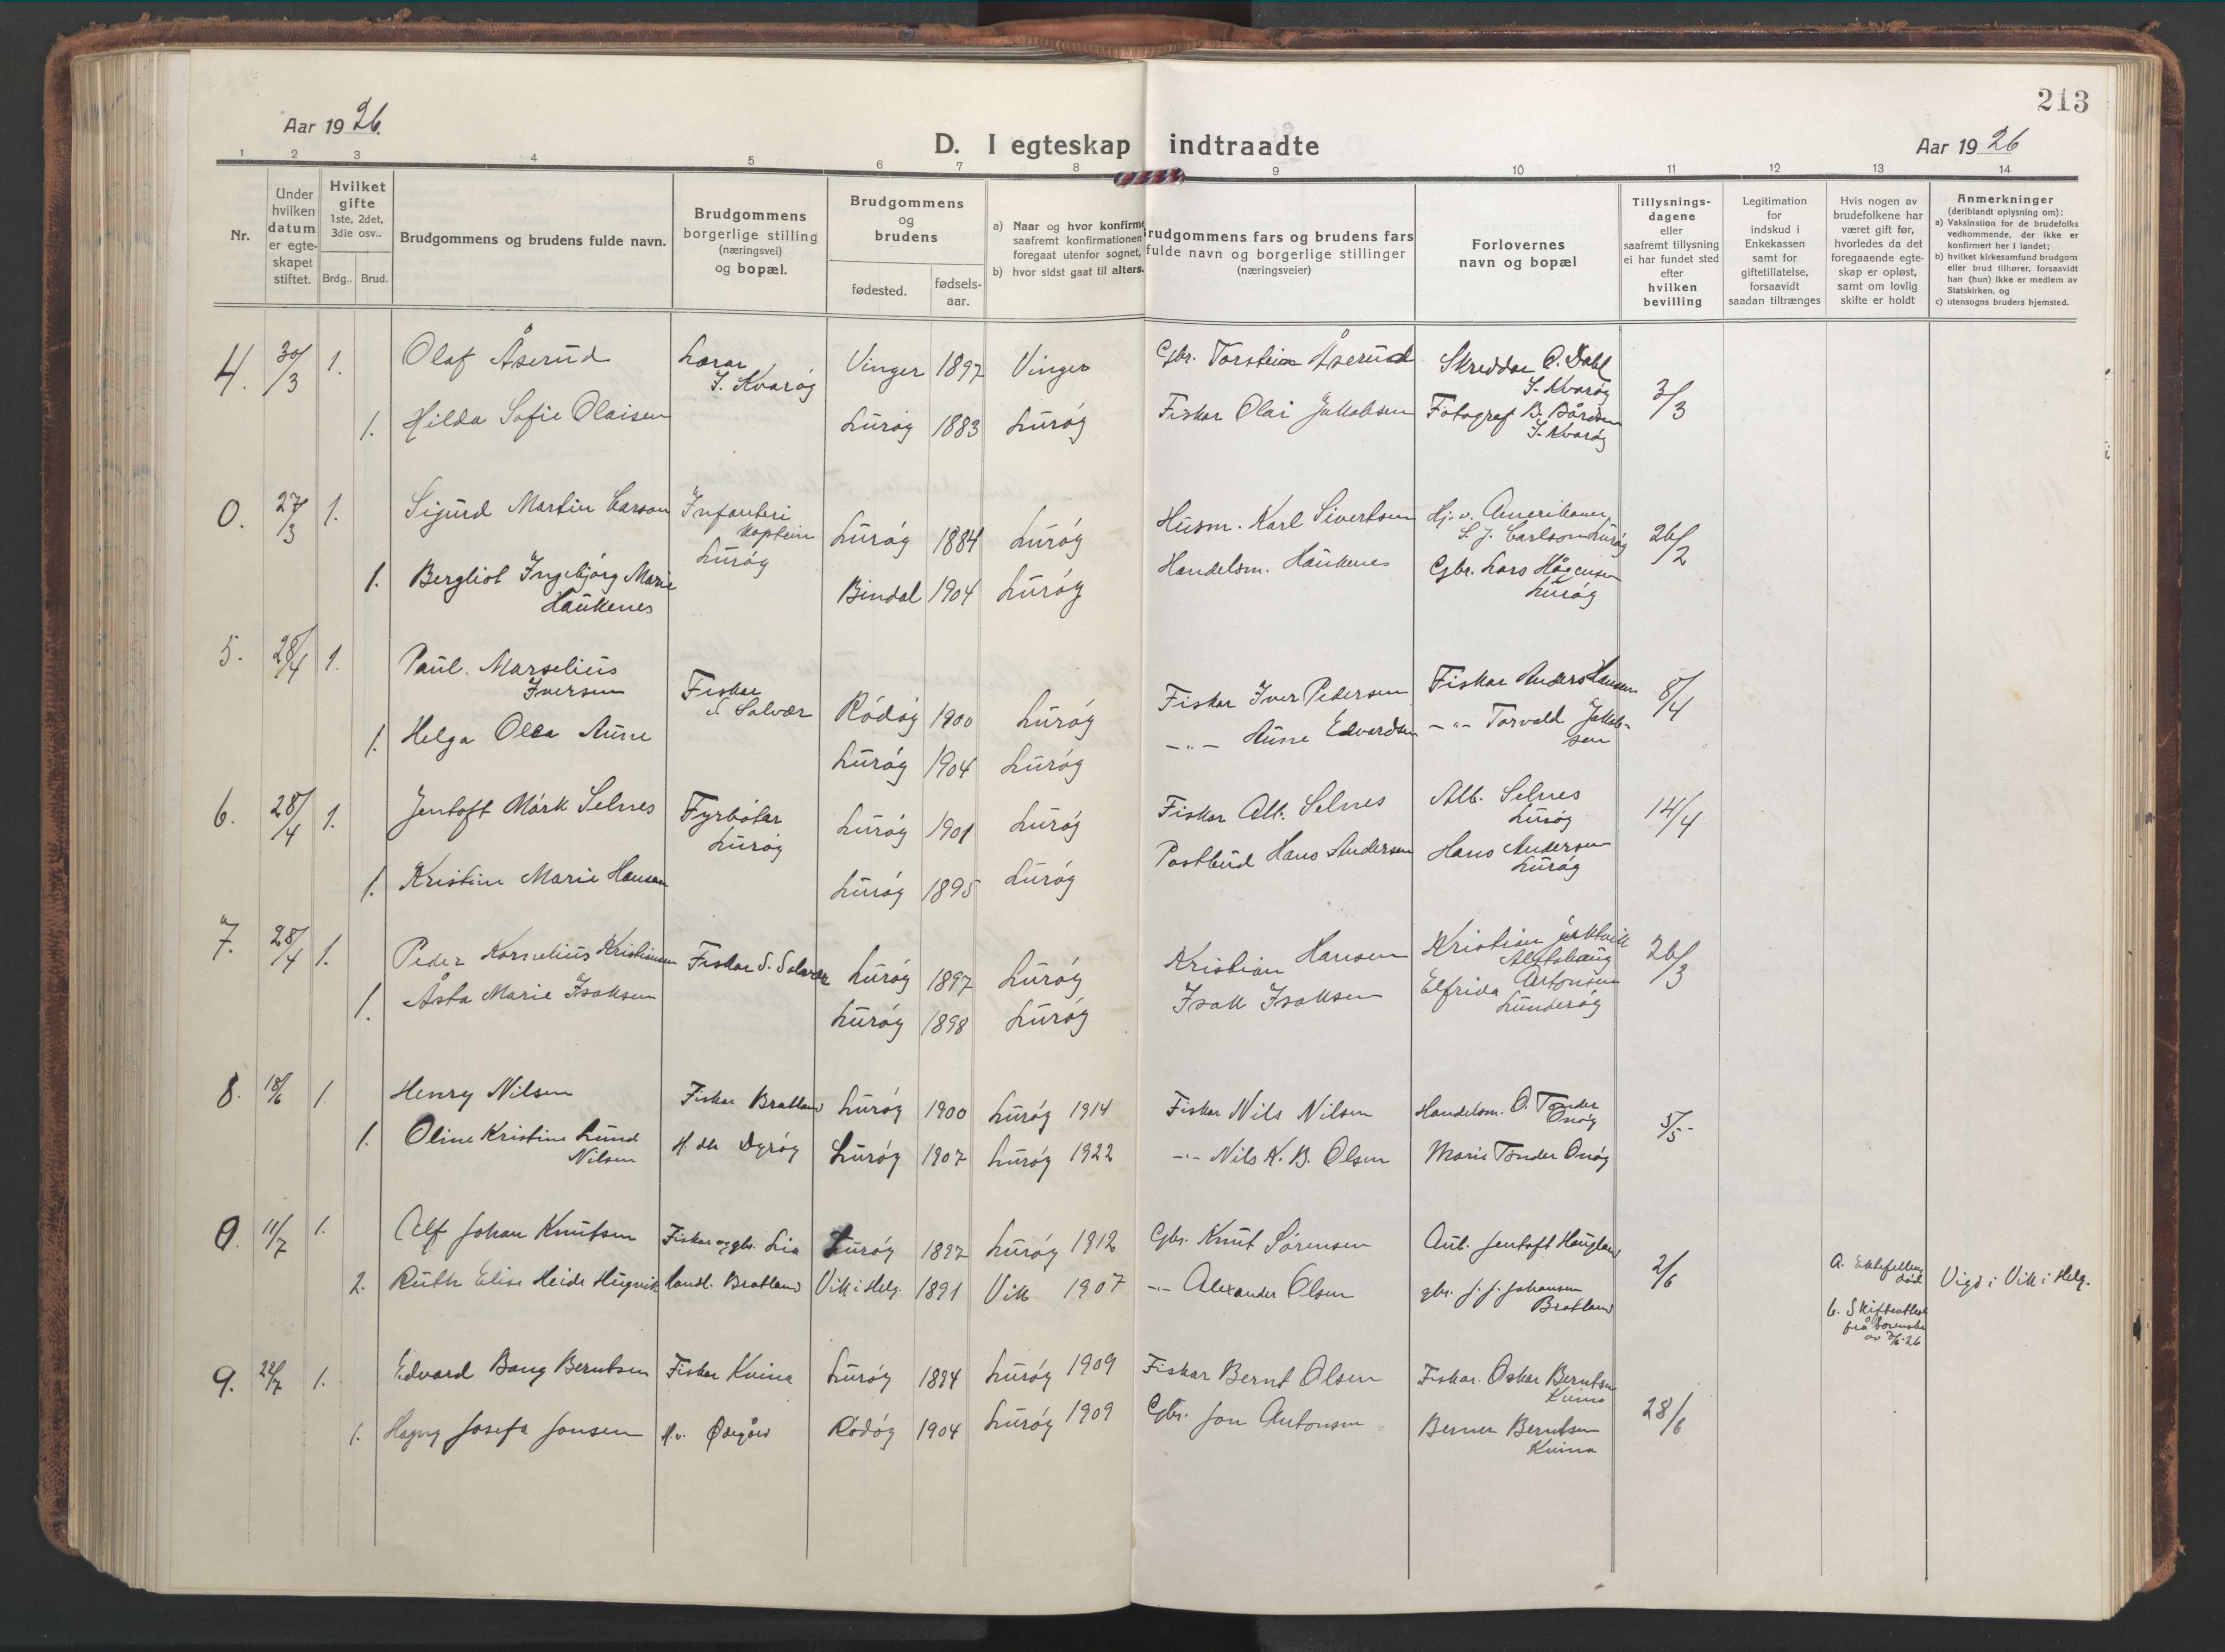 213
Aar 1926.
D. I egteskap indtraadte
Aar 1926
1 2 3 4 5 6 7 8 9 10 11 12 13 14
Nr.
Under hvilken datum er egteskapet stiftet.
Hvilket gifte 1ste, 2det, 3die osv..
Brdg.. Brud.
Brudgommens og brudens fulde navn.
Brudgommens borgerlige stilling (næringsvei) og bopæl.
Brudgommens og brudens
fødested.
fødsels-aar.
a) Naar og hvor konfirme
saafremt konfirmationen
foregaat utenfor sognet,
b) hvor sidst gaat til alters.
rudgommens fars og brudens fars
fulde navn og borgerlige stillinger
(næringsveier)
Forlovernes navn og bopæl
Tillysnings-dagene eller saafremt tillysning ei har fundet sted efter hvilken bevilling
Legitimation for indskud i Enkekassen samt for giftetillatelse, forsaavidt saadan tiltrænges
Hvis nogen av brudefolkene har været gift før, hvorledes da det foregaaende egte-skap er opløst, samt om lovlig skifte er holdt
Anmerkninger
(deriblandt oplysning om):
a) Vaksination for de brudefolks vedkommende, der ikke er konfirmert her i landet;
b) hvilket kirkesamfund brudgom eller brud tilhører, forsaavidt han (hun) ikke er medlem av Statskirken, og
c) utensogns bruders hjemsted.
4. 30/3 1. Olaf Åserud Lærar I. Kvarøy Vinger 1897 Vinger Gbr. Torstein Åserud Skreddar O. Dahl I. Kvarøy 3/3
1. Hilda Sofie Olaisen Lurøy 1883 Lurøy Fiskar Olai Jakobsen Fotograf B. Bårdsen I. Kvarøy
0. 27/3 1. Sigurd Martin Carson Infanteri kaptein Lurøy Lurøy 1884 Lurøy Husm. Karl Sivertsen Hj. v. Amerikaner S. J. Carlson Lurøy 26/2
1. Bergliot Ingebjørg Marie Haukenes Bindal 1904 Lurøy Handelsm. Haukenes Gbr. Lars Hågensen Lurøy
5. 28/4 1. Paul Marselius Iversen Fiskar S. Solvær Rødøy 1900 Lurøy Fiskar Iver Pedersen Fiskar Anders Hansen 8/4
1. Helga Olea Aune Lurøy 1904 Lurøy -"- Aune Edvardsen -"- Torvald Jakobsen
6. 28/4 1. Jentoft Mørk Selnes Fyrbøter Lurøy Lurøy 1901 Lurøy Fiskar Alb. Selnes Alb. Selnes Lurøy 14/4
1. Kristine Marie Hansen Lurøy 1895 Lurøy Postbud Hans Andersen Hans Andersen Lurøy
7. 28/4 1. Peder Kornelius Kristiansen Fiskar S. Solvær Lurøy 1897 Lurøy Kristian Hansen Kristian Alstahaug 26/3
1. Åsta Marie Isaksen Lurøy 1898 Lurøy Isak Isaksen Elfrida Antonsen Lunderøy
8. 18/6 1. Henry Nilsen Fiskar Bratland Lurøy 1900 Lurøy 1914 Fiskar Nils Nilsen Handelsm. O. Tonder Onøy 5/5
1. Oline Kristine Lund Nilsen H. dtr Dyrøy Lurøy 1907 Lurøy 1922 -"- Nils K. B. Olsen Marie Tonder Onøy
0. 11/7 1. Alf Johan Knutsen Fiskar og gbr. Lia Lurøy 1897 Lurøy 1912 Gbr. Knut Sørensen Aut. Jentoft Haugland 2/6
2. Ruth Elise Heide Hugvik Handl. Bratland Vik i Helg. 1891 Vik 1907 -"- Alexander Olsen gbr. J. J. Johansen Bratland A. Ektefellen død b. Skifteattest frå sorenskr. av 7/6-26 Vigd i Vik i Helg.
9. 22/7 1. Edvard Bang Berntsen Fiskar Kvina Lurøy 1894 Lurøy 1909 Fiskar Bernt Olsen Fiskar Oskar Berntsen Kvina 28/6
1. Hagny Josefa Jonsen H. v. Ødegård Rødøy 1904 Lurøy 1909 Gbr. Jon Antonsen Berner Berntsen Kvina